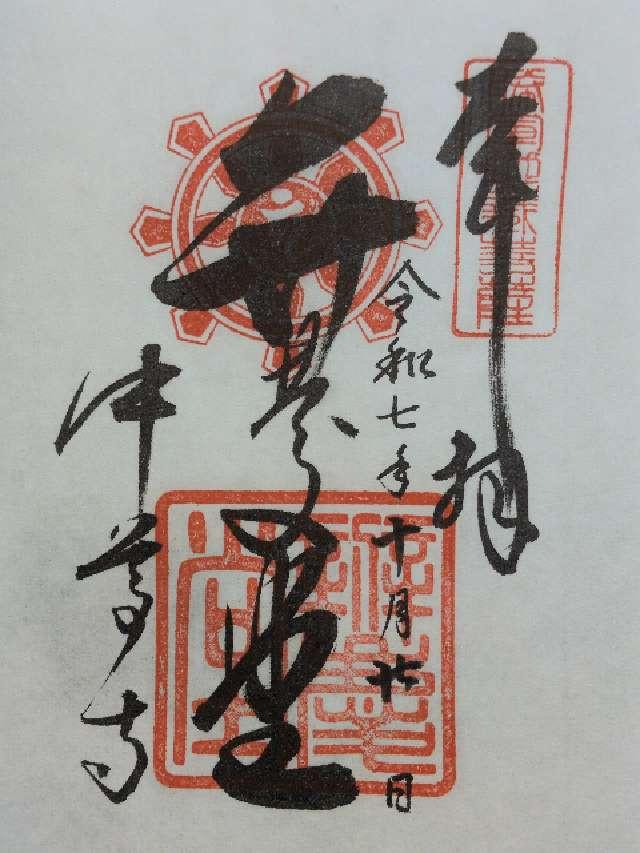 奉拝
令和七年十月廿日
弁慶堂
中尊寺